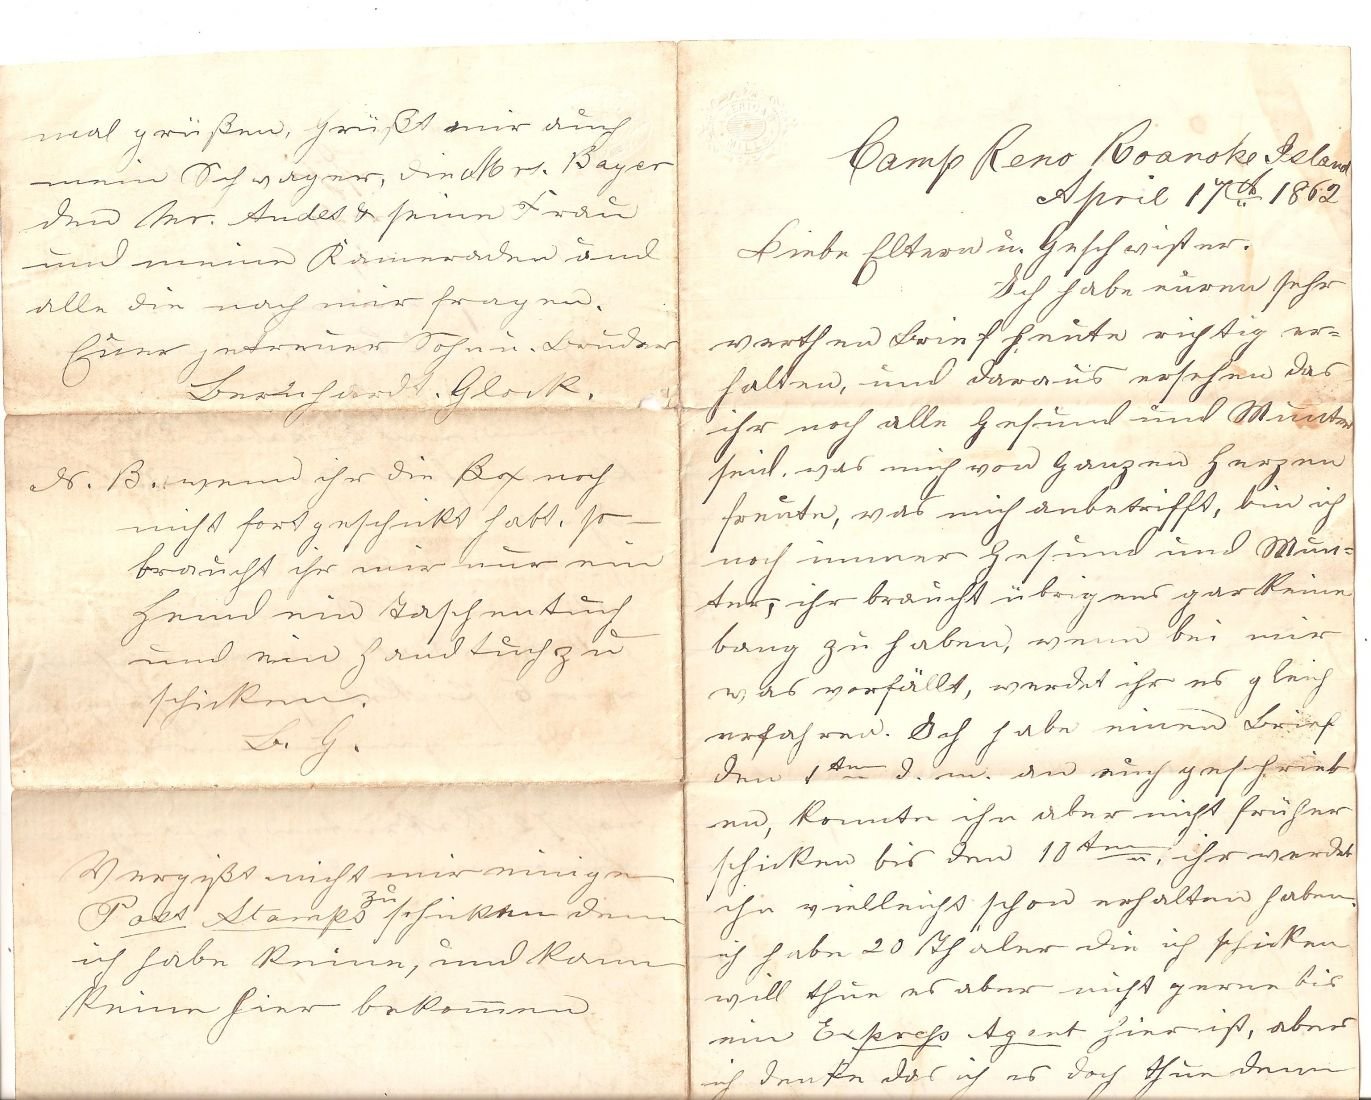 Camp Reno Roanoke Island
April 17th 1862
Liebe Eltern u. Geschwister.
Ich habe euren sehr
werthen Brief heute richtig er=
halten, und daraus ersehen das
ihr noch alle Gesund und Munter
seid. was mich von Ganzen Herzen
freute, was mich anbetrifft, bin ich
noch immer Gesund und Mun=
ter, ihr braucht übrigens gar keine
bang zu haben, wenn bei mir
was vorfällt, werdet ihr es gleich
erfahren. Ich habe einen Brief
den 1ten d. m. an euch geschrieb
en, konnte ihn aber nicht früher
schicken bis den 10ten, ihr werdet
ihn vielleicht schon erhalten haben.
ich habe 20 Thaler die ich schicken
will thue es aber nicht gerne bis
ein Express Agent hier ist, aber
ich denke das ich es doch thue denn
mal grüßen, Grüßt mir auch
mein Schwager, die Mrs. Bayer
den Mr. Andes & seine Frau
und meine Kameraden und
alle die nach mir fragen.
Euer getreuer Sohn u. Bruder
Bernhardt. Glock.
N. B. wenn ihr die Box noch
nicht fortgeschikt habt. so
braucht ihr mir nur ein
Hemd ein Taschentuch
und ein Handtuch zu
schicken.
B. G.
Vergißt nicht mir einige
Post Stamps zu schikken denn
ich habe keine, und kann
keine hier bekommen